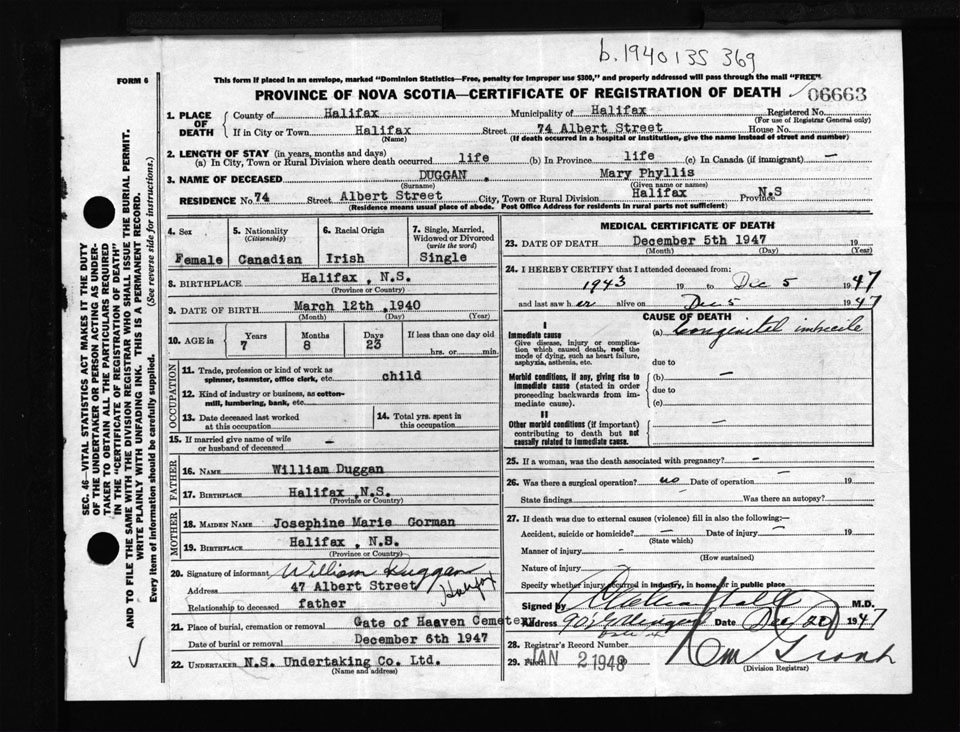 b.1940 135 369
FORM 6
This form if placed in an envelope, marked "Dominion Statistics—Free, penalty for improper use $300," and properly addressed will pass through the mail "FREE"
PROVINCE OF NOVA SCOTIA—CERTIFICATE OF REGISTRATION OF DEATH
06663
1. PLACE OF DEATH
County of Halifax Municipality of Halifax Registered No.
(For use of Registrar General only)
If in City or Town Halifax Street 74 Albert Street House No.
(Name) (If death occurred in a hospital or institution, give the name instead of street and number)
2. LENGTH OF STAY (in years, months and days)
(a) In City, Town or Rural Division where death occurred life (b) In Province life (c) In Canada (if immigrant) —
3. NAME OF DECEASED DUGGAN , Mary Phyllis
(Surname) (Given name or names)
RESIDENCE No. 74 Street Albert Street City, Town or Rural Division Halifax Province N.S
(Residence means usual place of abode. Post Office Address for residents in rural parts not sufficient)
4. Sex
Female
5. Nationality (Citizenship)
Canadian
6. Racial Origin
Irish
7. Single, Married, Widowed or Divorced (write the word)
Single
8. BIRTHPLACE Halifax , N.S.
(Province or Country)
9. DATE OF BIRTH March 12th ,1940
(Month) (Day) (Year)
10. AGE in
Years 7
Months 8
Days 23
If less than one day old
hrs. or min.
OCCUPATION
11. Trade, profession or kind of work as spinner, teamster, office clerk, etc. child
12. Kind of industry or business, as cotton-mill, lumbering, bank, etc.
13. Date deceased last worked at this occupation
14. Total yrs. spent in this occupation
15. If married give name of wife or husband of deceased —
FATHER
16. NAME William Duggan
17. BIRTHPLACE Halifax ,N.S.
(Province or Country)
MOTHER
18. MAIDEN NAME Josephine Marie Gorman
19. BIRTHPLACE Halifax , N.S.
(Province or Country)
20. Signature of informant William Duggan
Address 47 Albert Street Halifax
Relationship to deceased father
21. Place of burial, cremation or removal Gate of Heaven Cemetery
Date of burial or removal December 6th 1947
22. UNDERTAKER N.S. Undertaking Co. Ltd.
(Name and address)
MEDICAL CERTIFICATE OF DEATH
23. DATE OF DEATH December 5th 1947 19
(Month) (Day) (Year)
24. I HEREBY CERTIFY that I attended deceased from:
1943 19 to Dec 5 1947
and last saw her alive on Dec 5 1947
CAUSE OF DEATH
I
Immediate cause
Give disease, injury or complication which caused death, not the mode of dying, such as heart failure, asphyxia, asthenia, etc.
(a) Congenital imbecile
due to
Morbid conditions, if any, giving rise to immediate cause (stated in order proceeding backwards from immediate cause).
(b) —
due to
(c)
II
Other morbid conditions (if important) contributing to death but not causally related to immediate cause.
—
25. If a woman, was the death associated with pregnancy? —
26. Was there a surgical operation? no Date of operation — 19
State findings Was there an autopsy?
27. If death was due to external causes (violence) fill in also the following:—
Accident, suicide or homicide? — Date of injury — 19
(State which)
Manner of injury —
(How sustained)
Nature of injury
Specify whether injury occurred in industry, in home, or in public place
Signed by M.D.
Address Date Dec 20 1947
28. Registrar's Record Number
29. Filed JAN 2 1948
(Division Registrar)
SEC. 46—VITAL STATISTICS ACT MAKES IT THE DUTY
OF THE UNDERTAKER OR PERSON ACTING AS UNDERTAKER TO OBTAIN ALL THE PARTICULARS REQUIRED
IN THE "CERTIFICATE OF REGISTRATION OF DEATH"
AND TO FILE THE SAME WITH THE DIVISION REGISTRAR WHO SHALL ISSUE THE BURIAL PERMIT.
WRITE PLAINLY WITH UNFADING INK. THIS IS A PERMANENT RECORD.
Every item of information should be carefully supplied. (See reverse side for instructions.)